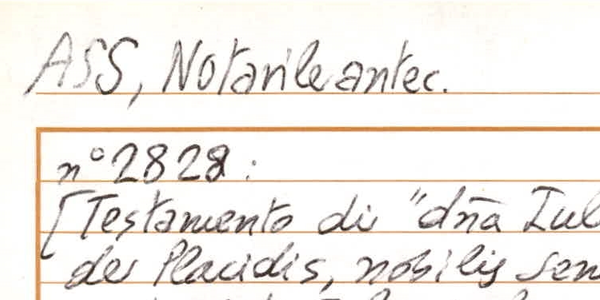 ASS, Notarile antec.
n° 2828:
[Testamento di "dña Iul
de Placidis, nobilis sen